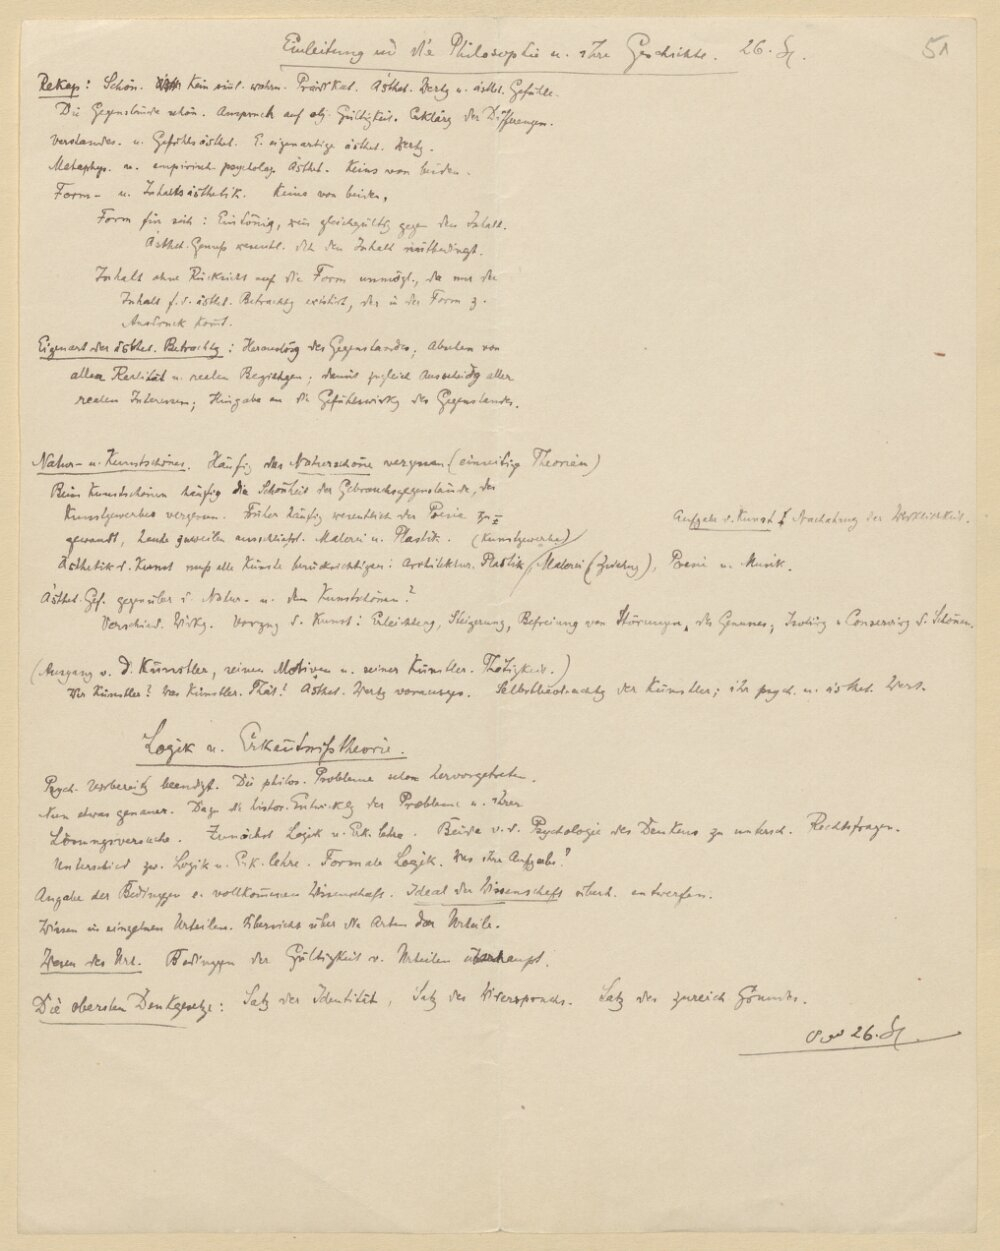 Einleitung in die Philosophie u. ihre Geschichte. 26. St. 51
Rekap: Schön. kein einf. wahrn. Prädikat. Ästhet. Wertg u. ästhet. Gefühle.
Die Gegenstände schön. Anspruch auf obj. Gültigkeit. Erklärg der Differenzen.
Verstandes- u. Gefühlsästhet. E. eigenartige ästhet. Wertg.
Metaphys. u. empirisch-psycholog. Ästhet. Keins von beiden.
Form- u. Inhaltsästhetik. Keins von beiden,
Form für sich: Eintönig, gleichgültig gegen den Inhalt.
Ästhet. Genuß wesentl. dch den Inhalt mitbedingt.
Inhalt ohne Rücksicht auf die Form unmögl., da nur der
Inhalt f. d. ästhet. Betrachtg existirt, der in der Form z.
Ausdruck komt.
Eigenart der ästhet. Betrachtg: Herauslösg des Gegenstandes; Absehen von
aller Realität u. realen Beziehgen; damit zugleich Ausscheidg aller
realen Interessen; Hingabe an die Gefühlswirkg des Gegenstandes.
Natur- u. Kunstschönes. Häufig das Naturschöne vergessen (einseitige Theorien)
Beim Kunstschönen häufig die Schönheit der Gebrauchsgegenstände, des
Kunstgewerbes vergessen. Früher häufig wesentlich der Poesie zu=
Aufgabe d. Kunst Nachahmung der Wirklichkeit.
gewandt, heute zuweilen ausschließl. Malerei u. Plastik. (Kunstgewerbe)
Ästhetik d. Kunst muß alle Künste berücksichtigen: Architektur, Plastik, Malerei (Zeichng), Poesie u. Musik.
Ästhet. Gef. gegenüber d. Natur- u. dem Kunstschönen?
Verschied. Wirkg. Vorzug d. Kunst: Erleichterg, Steigerung, Befreiung von Störungen, des Genusses; Isolirg u Conservirg d. Schönen.
(Ausgang v. d. Künstler, seinen Motiven u. seiner künstler. Thätigkeit.)
Wer Künstler? Was künstler. That! Ästhet. Wertg vorausges. Selbstbeobachtg der Künstler; ihr psych. u. ästhet. Wert.
Logik u. Erkentnißtheorie.
Psych. Vorbereitg beendigt. Die philos. Probleme schon hervorgetreten.
Nun etwas genauer. Dazu die histor. Entwicklg der Probleme u. ihrer
Lösungsversuche. Zunächst Logik u. Erk.lehre. Beide v. d. Psychologie des Denkens zu untersch. Rechtsfragen.
Unterschied zw. Logik u. Erk.lehre. Formale Logik. Was ihre Aufgabe?
Angabe der Bedinggen e. vollkomenen Wissenschaft. Ideal der Wissenschaft überh. entwerfen.
Wissen in einzelnen Urteilen. Übersicht über die Arten der Urteile.
Wesen des Urt. Bedinggen der Gültigkeit v. Urteilen überhaupt.
Die obersten Denkgesetze: Satz der Identität, Satz des Widerspruchs. Satz des zureich. Grundes.
26. St.